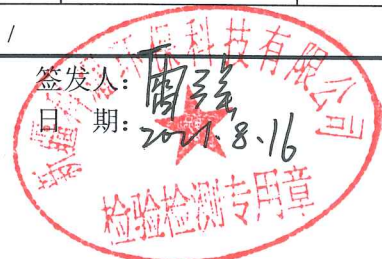 /
签发人：周强
日 期：2021.8.16
环保科技有限公司
检验检测专用章